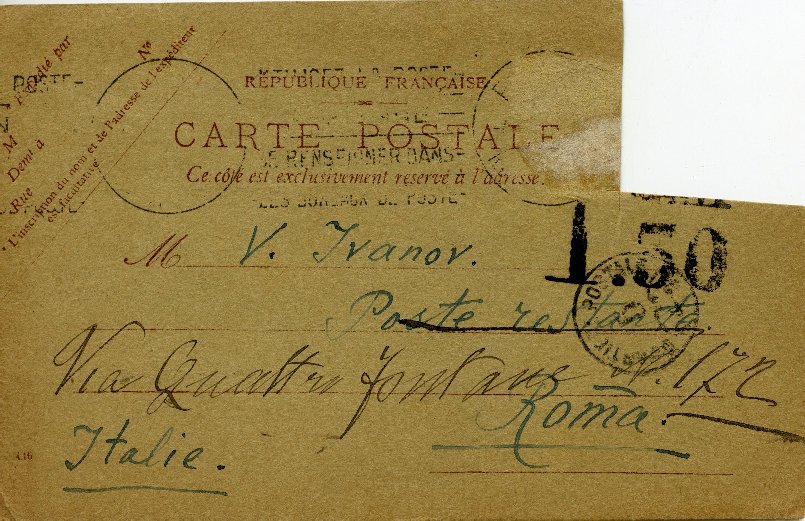 Expédié par
M
Demt à
Rue
N°
L'inscription du nom et de l'adresse de l'expéditeur
est facultative
POSTE-
RÉPUBLIQUE FRANÇAISE
CARTE POSTALE
SE RENSEIGNER DANS
Ce côté est exclusivement réservé à l'adresse.
LES BUREAUX DE POSTE
1.50
M V. Ivanov.
Poste restanta.
Via Quattro fontane N. 172
Roma.
Italie.